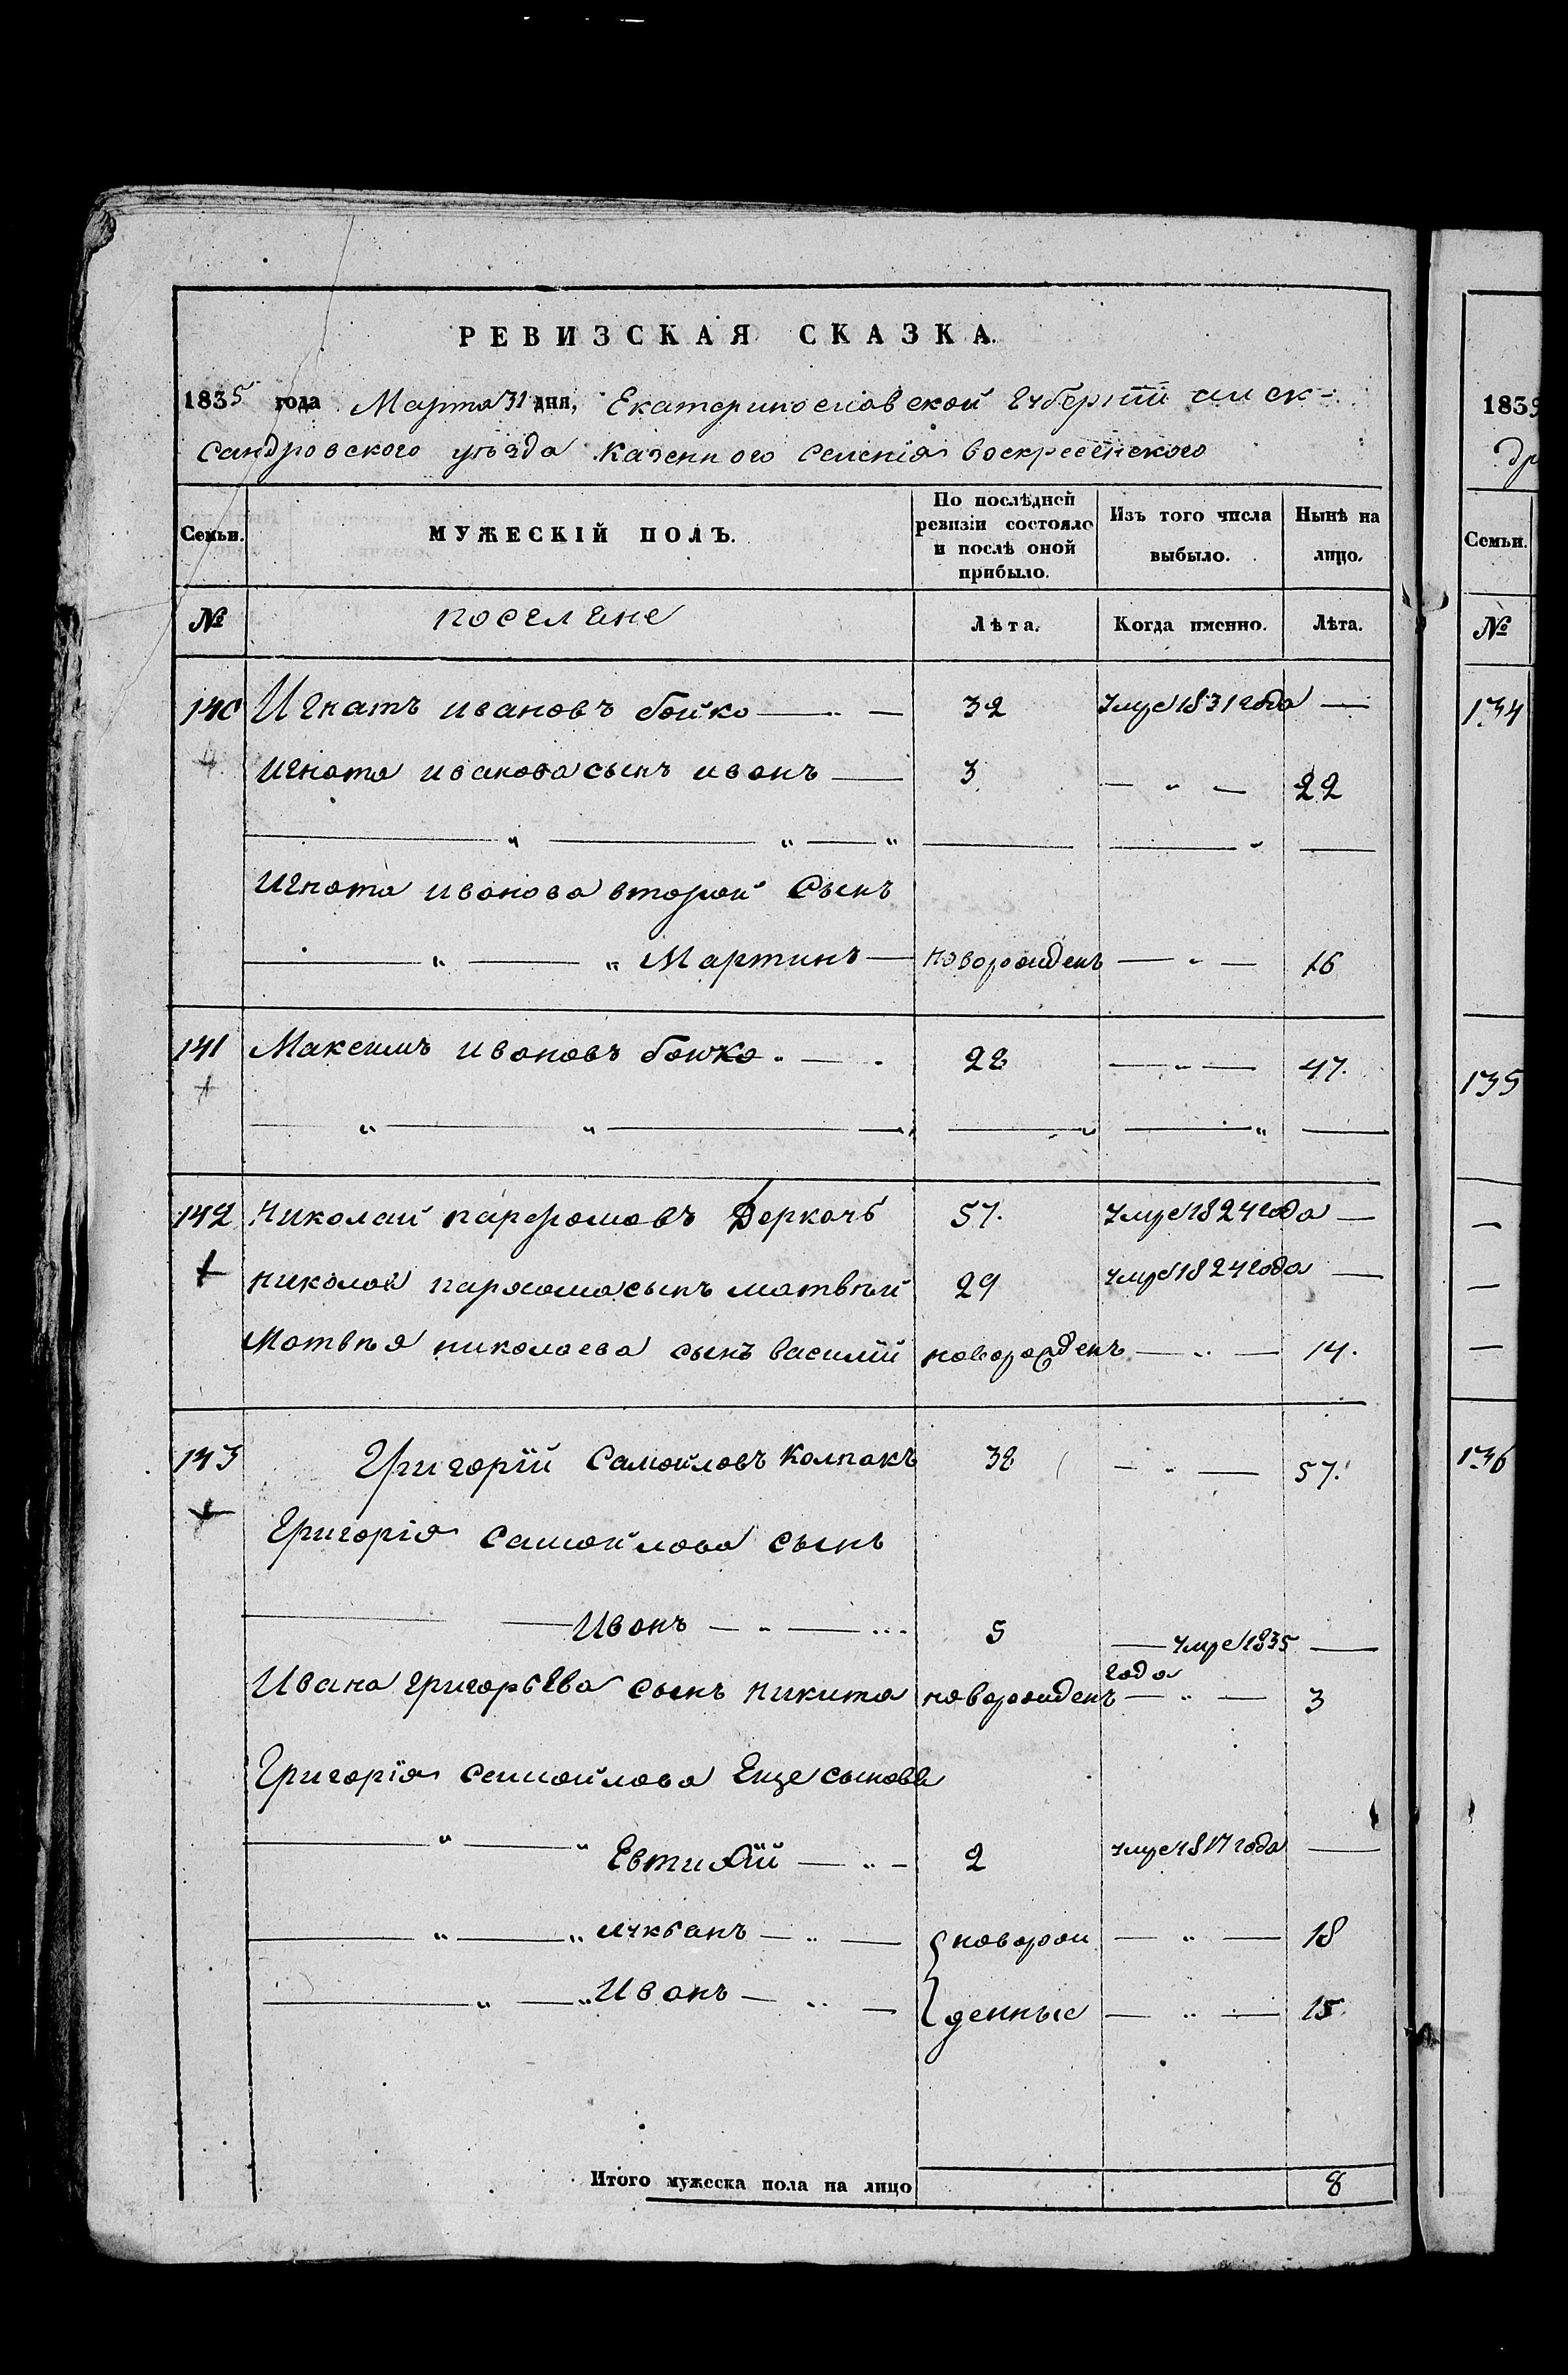 РЕВИЗСКАЯ СКАЗКА.
1835 года Марта 31 дня, Екатеринославской Губернии алек-
сандровского уѣзда казенного селенія воскресенского
Семьи. МУЖЕСКІЙ ПОЛЪ. По послѣдней ревизіи состояло и послѣ оной прибыло. Изъ того числа выбыло. Нынѣ на лицо.
№ поселяне Лѣта. Когда именно. Лѣта.
140 Игнатъ ивановъ бойко — 32 умре 1831 года —
4 игната иванова сынъ иванъ — 3 — „ — 22
игната иванова второй сынъ
— „ — „ Мартинъ — новорожденъ — „ — 16
141 Максимъ ивановъ бойко — 28 — „ — 47.
142 николай парфомовъ Деркачь 57. умре 1824 года —
николая парфома сынъ матвѣй 29 умре 1824 года —
Матвѣя николаева сынъ василій новорожденъ — „ — 14.
143 Григорій Самойловъ Колпакъ 38 — „ — 57.
Григорія самойлова сынъ
— Иванъ — „ — 5 — умре 1835 —
года
Ивана григорьева сынъ никита новорожденъ — „ — 3
Григорія самойлова Еще сыновья
— „ — „ Евтифій — „ — 2 умре 1817 года —
— „ — „ — „ — новорож — „ — 18
— „ — „ Иванъ — „ — денные — „ — 15
Итого мужеска пола на лицо 8
1835
др
Семьи.
№
134
135
136